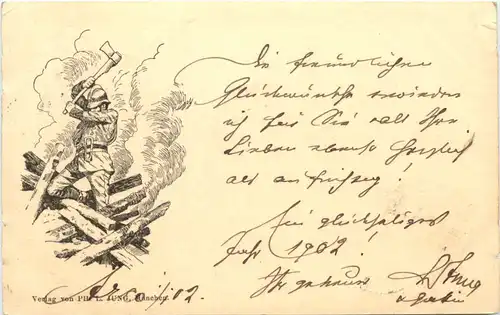 Die freundlichen
Glückwünsche erwidere
ich für Sie all Ihre
Lieben ebenso herzlich
als aufrichtig!
Ein glückseliges
Jahr 1902!
Ihr
Verlag von PH. L. JUNG, München.
02.